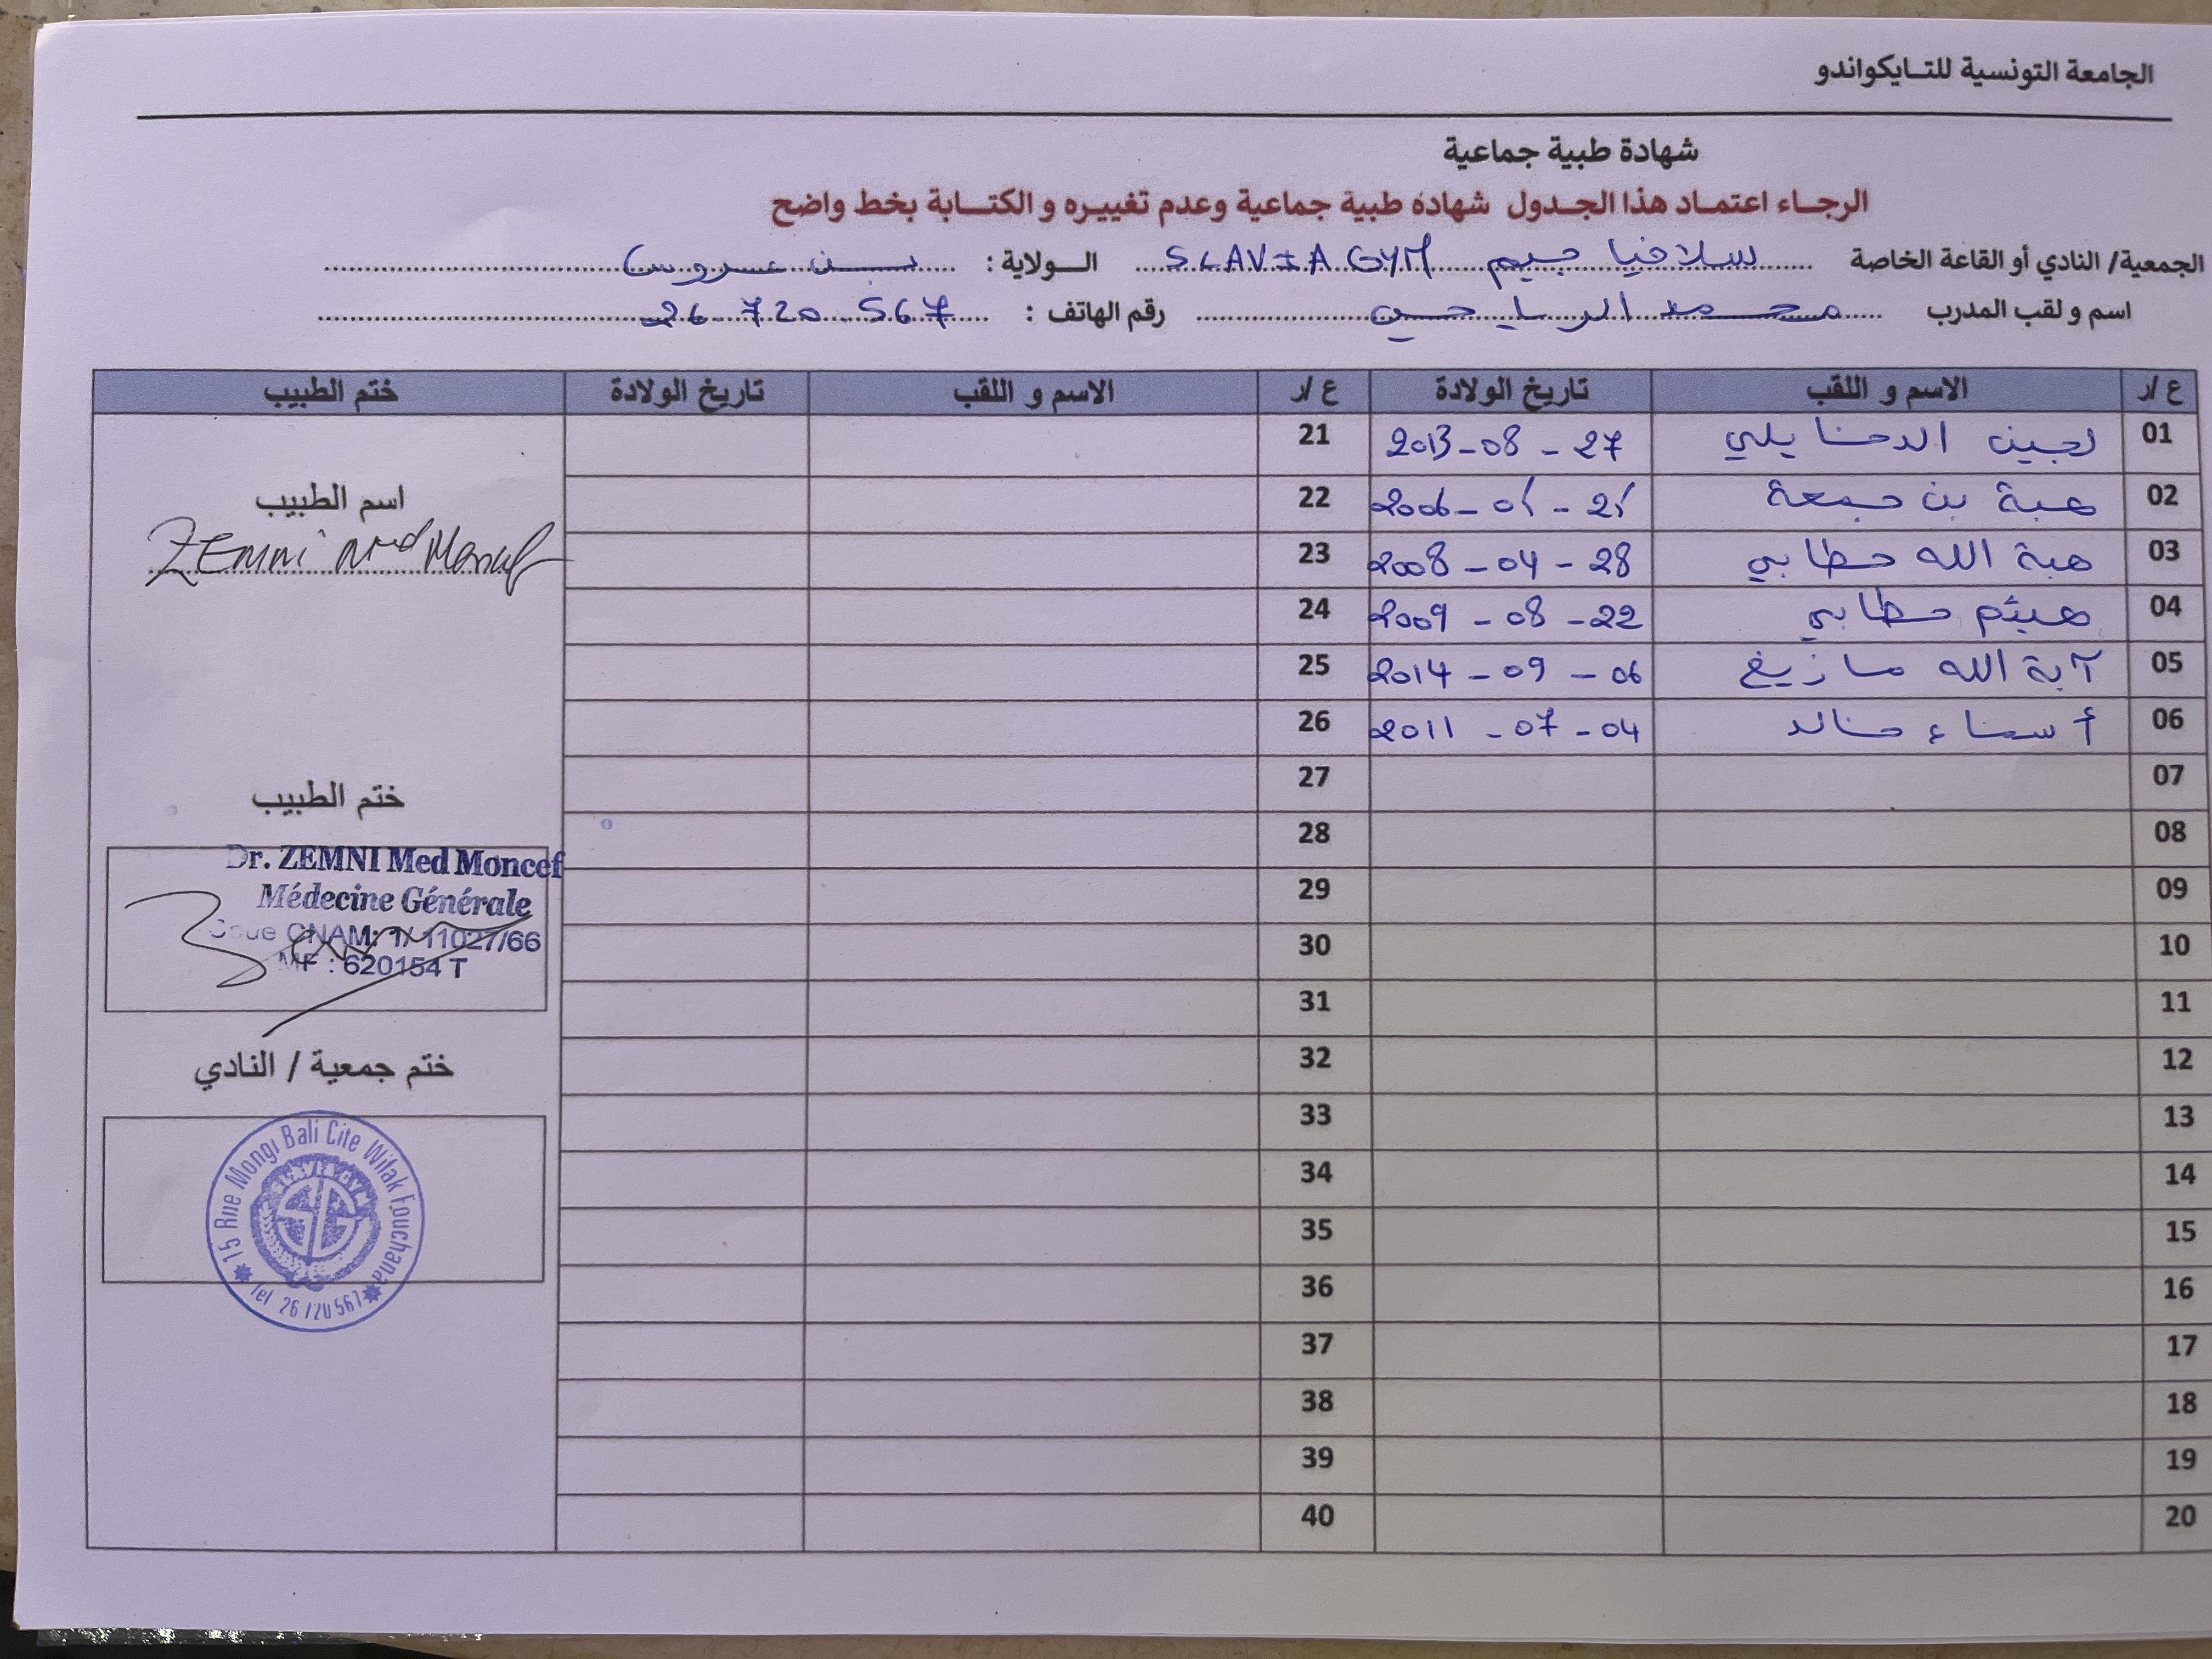 الجامعة التونسية للتايكواندو
شهادة طبية جماعية
الرجاء اعتماد هذا الجدول شهاده طبية جماعية وعدم تغييره و الكتابة بخط واضح
الجمعية/ النادي أو القاعة الخاصة سلافيا جيم SLAVIA GYM الولاية : بن عروس
اسم و لقب المدرب محمد الرياحي رقم الهاتف : 26 720 567
ع/ر الاسم و اللقب تاريخ الولادة ع/ر الاسم و اللقب تاريخ الولادة ختم الطبيب
01 لجين الدخايلي 2013-08-27 21
02 هبة بن جمعة 2006-01-21 22
03 هبة الله حطابي 2008-04-28 23
04 هيثم حطابي 2009-08-22 24
05 آية الله مازيغ 2014-09-06 25
06 أسماء خالد 2011-07-04 26
07 27
08 28
09 29
10 30
11 31
12 32
13 33
14 34
15 35
16 36
17 37
18 38
19 39
20 40
اسم الطبيب
ZEMNI Med Moncef
ختم الطبيب
Dr. ZEMNI Med Moncef
Médecine Générale
Code CNAM: 1/ 11027/66
MF : 620154 T
ختم جمعية / النادي
15 Rue Mongi Bali Cite Wifak Fouchana
Tel 26 720 567